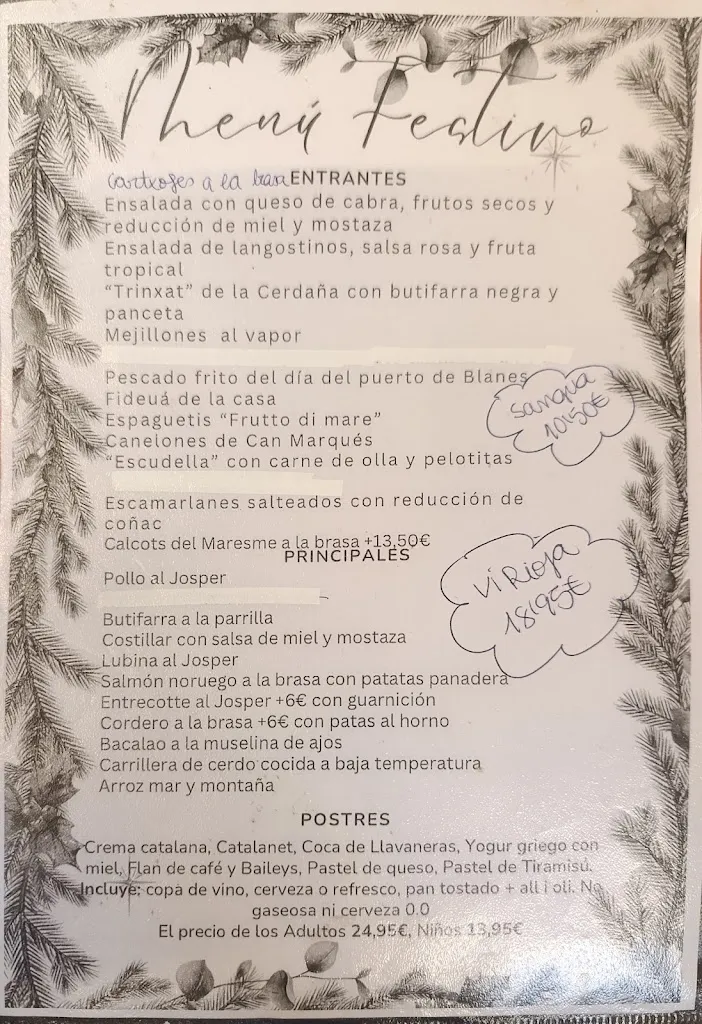 Menú Festivo
carxofes a la brasa ENTRANTES
Ensalada con queso de cabra, frutos secos y
reducción de miel y mostaza
Ensalada de langostinos, salsa rosa y fruta
tropical
“Trinxat” de la Cerdaña con butifarra negra y
panceta
Mejillones al vapor
Pescado frito del día del puerto de Blanes
Fideuá de la casa
Espaguetis “Frutto di mare”
Canelones de Can Marqués
“Escudella” con carne de olla y pelotitas
Sangria
10'50€
Escamarlanes salteados con reducción de
coñac
Calcots del Maresme a la brasa +13,50€
PRINCIPALES
Pollo al Josper
Vi Rioja
18'95€
Butifarra a la parrilla
Costillar con salsa de miel y mostaza
Lubina al Josper
Salmón noruego a la brasa con patatas panadera
Entrecotte al Josper +6€ con guarnición
Cordero a la brasa +6€ con patas al horno
Bacalao a la muselina de ajos
Carrillera de cerdo cocida a baja temperatura
Arroz mar y montaña
POSTRES
Crema catalana, Catalanet, Coca de Llavaneras, Yogur griego con
miel, Flan de café y Baileys, Pastel de queso, Pastel de Tiramisú.
Incluye: copa de vino, cerveza o refresco, pan tostado + all i oli. No
gaseosa ni cerveza 0.0
El precio de los Adultos 24,95€, Niños 13,95€